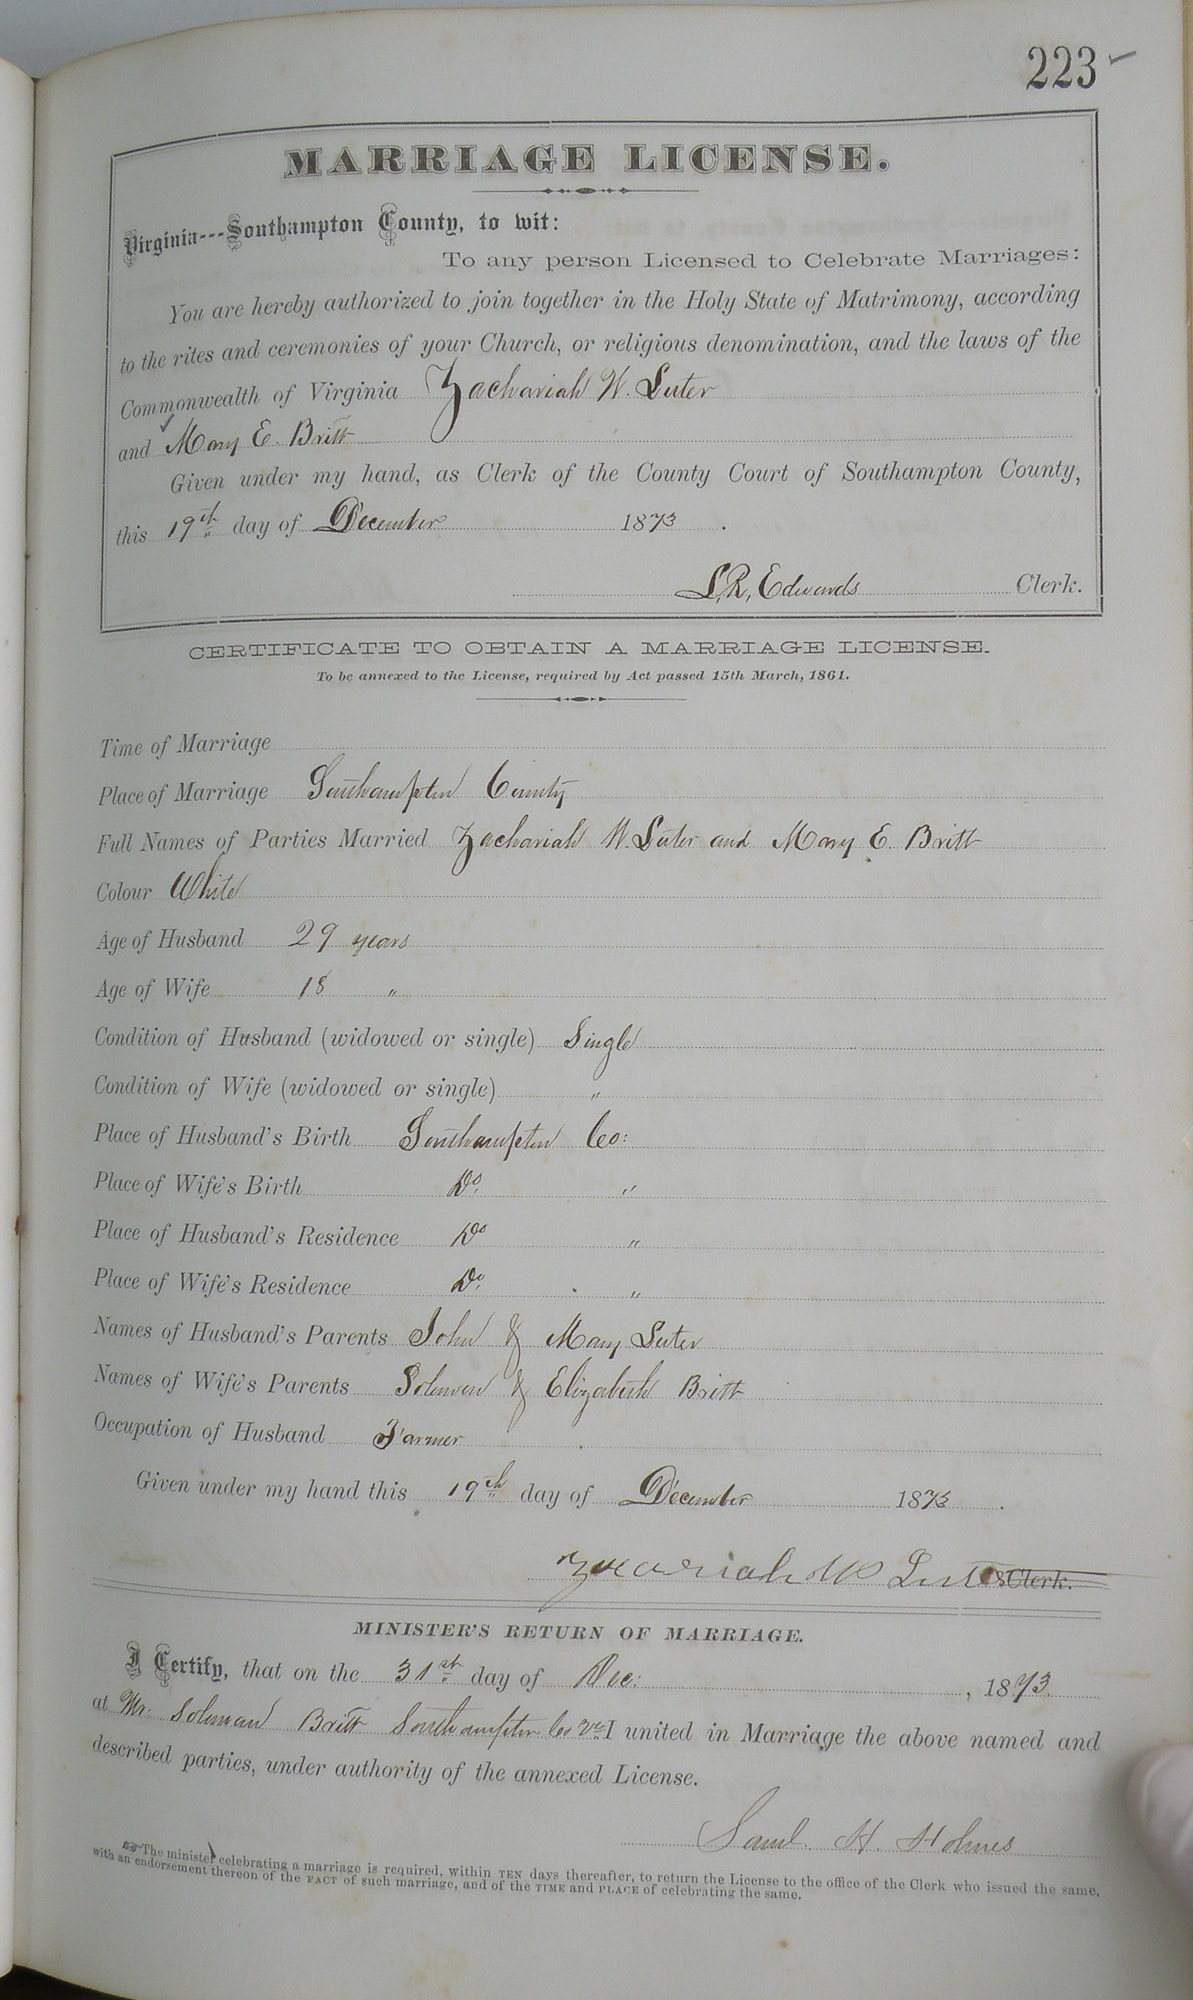 223
MARRIAGE LICENSE.
Virginia---Southampton County, to wit:
To any person Licensed to Celebrate Marriages:
You are hereby authorized to join together in the Holy State of Matrimony, according
to the rites and ceremonies of your Church, or religious denomination, and the laws of the
Commonwealth of Virginia Zachariah W. Luter
and Mary E. Britt
Given under my hand, as Clerk of the County Court of Southampton County,
this 19th day of December 1873.
L. R. Edwards Clerk.
CERTIFICATE TO OBTAIN A MARRIAGE LICENSE.
To be annexed to the License, required by Act passed 15th March, 1861.
Time of Marriage
Place of Marriage Southampton County
Full Names of Parties Married Zachariah W. Luter and Mary E. Britt
Colour White
Age of Husband 29 years
Age of Wife 18 "
Condition of Husband (widowed or single) Single
Condition of Wife (widowed or single) "
Place of Husband's Birth Southampton Co:
Place of Wife's Birth Do. "
Place of Husband's Residence Do "
Place of Wife's Residence Do. "
Names of Husband's Parents John & Mary Luter
Names of Wife's Parents Soloman & Elizabeth Britt
Occupation of Husband Farmer
Given under my hand this 19th day of December 1873.
Zacariah W Luter Clerk.
MINISTER'S RETURN OF MARRIAGE.
I Certify, that on the 31st day of Dec: , 1873.
at Mr. Soloman Britt Southampton Co Va I united in Marriage the above named and
described parties, under authority of the annexed License.
Saml. H. Holmes
The minister celebrating a marriage is required, within TEN days thereafter, to return the License to the office of the Clerk who issued the same,
with an endorsement thereon of the FACT of such marriage, and of the TIME and PLACE of celebrating the same.